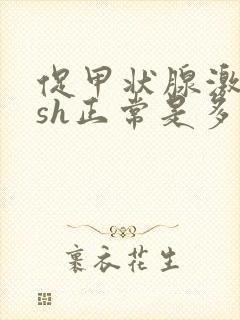 促甲状腺激
sh正常是多
裹衣花生